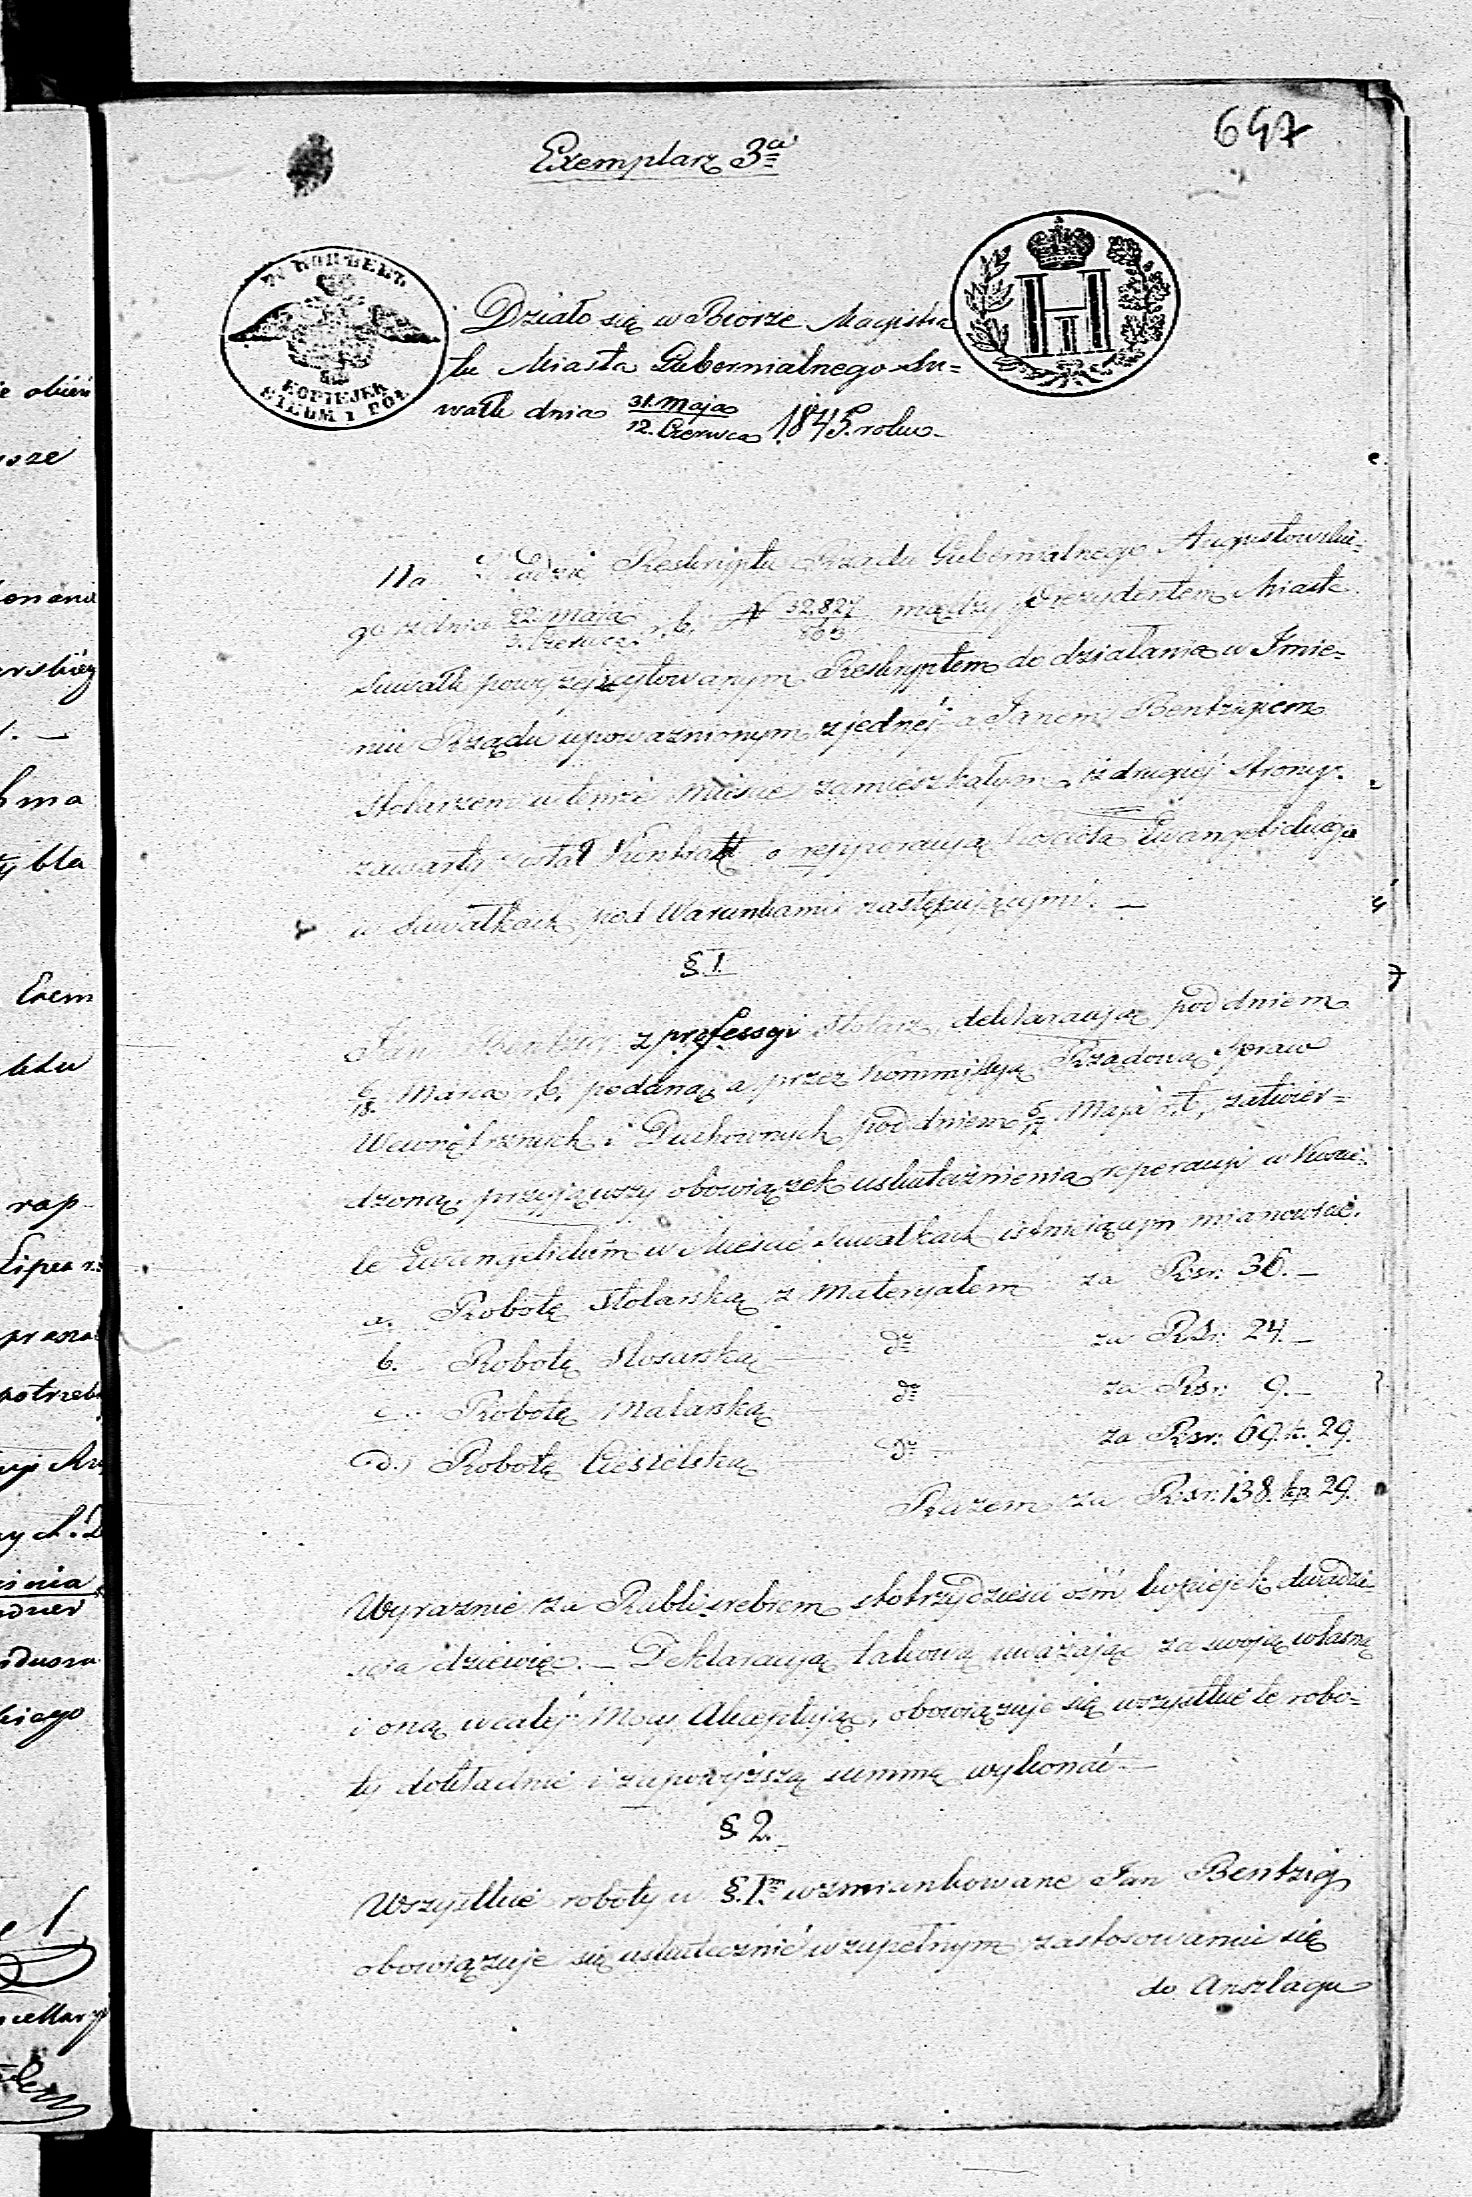 647
Exemplarz 3a
7½ КОПѢЕКЪ
KOPIEJEK
SIEDM I PÓŁ
H I
Działo się w Biorze Magistra
tu Miasta Gubernialnego Su=
wałk dnia 31. Maja / 12. Czerwca 1845. roku
Na Zasadzie Reskryptu Rządu Gubernialnego Augustowskie=
go z dnia 22 Maja / 3. Czerwca r. b. N 32,827 między Prezydentem Miasta
Suwałk powyżej cytowanym Reskryptem do działania w Imie=
niu Rządu upoważnionym z jednéj a Janem Bentzigiem
Stolarzem w temże Mieście zamieszkałym, z drugiéj strony
zawarty został Kontrakt o repperacyą Kościoła Ewangelickiego
w Suwałkach pod Warunkami następującymi. —
§ 1.
Jan Bentzig z professyi Stolarz, deklaracyą pod dniem
6/18. Marca r. b. podaną a przez Kommissyą Rządową Spraw
Wewnętrznych i Duchownych pod dniem 5/17 Maja r. b. zatwier=
dzoną, przyjąwszy obowiązek uskutecznienia reperacyi w Kościo
le Ewangelickim w Mieście Suwałkach istniącym mianowicie.
a. Robotę Stolarską z Materyałem za Rsr. 36. —
b. Robotę Slosarską — do za Rsr. 24. —
c. Robotę Malarską — do za Rsr. 9. —
d. Robotę Ciesielską — do za Rsr. 69. k. 29.
Razem za Rsr. 138. kp. 29.
Wyraznie za Rubli srebrem stotrzydzieści ośm kopiejek dwadzie
ścia dziewięć. — Deklaracyą takową uważając za swoją własną
i oną w całéj Mocy Akceptując, obowiązuje się wszystkie te robo=
ty dokładnie i za powyższą summę wykonać. —
§ 2.
Wszystkie roboty w §. 1m wzmiankowane Jan Bentzig
obowiązuje się uskutecznić w zupełnym zastosowaniu się
do Anszlagu